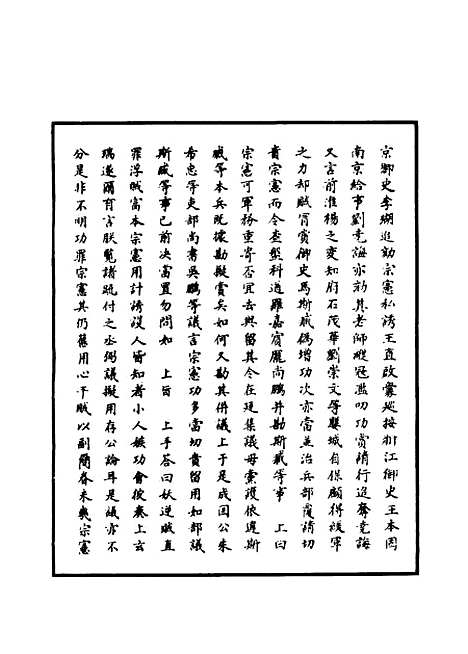 京御史李瑚追劾宗憲私誘王直啟釁巡按浙江御史王本固
南京給事劉堯誨亦劾其老師縱寇濫叨功賞請行追奪堯誨
又言前淮楊之變知府石茂華劉崇文等嬰城自保顧得援軍
之力却賊胥賞御史馬斯臧偽增功次亦當並治兵部覆請切
責宗憲而令查盤科道羅嘉賓龐尚鵬并勘斯臧等事 上曰
宗憲可軍務重寄否宜去與留其令在廷集議毋黨護依違斯
臧等本兵既據勘擬賞矣如何又勘其併議上于是成国公朱
希忠等吏部尚書吳鵬等議言宗憲功多當切責留用如部議
斯臧等事已前決當置勿問如 上旨 上手答曰妖逆賊直
罪浮賊富本宗憲用計誘設人皆知者小人嫉功會彼奏上玄
瑞遂爾有言朕覽諸疏付之丞弼議擬用存公論耳是議亦不
分是非不明功罪宗憲其仍舊用心平賊以副簡眷未幾宗憲